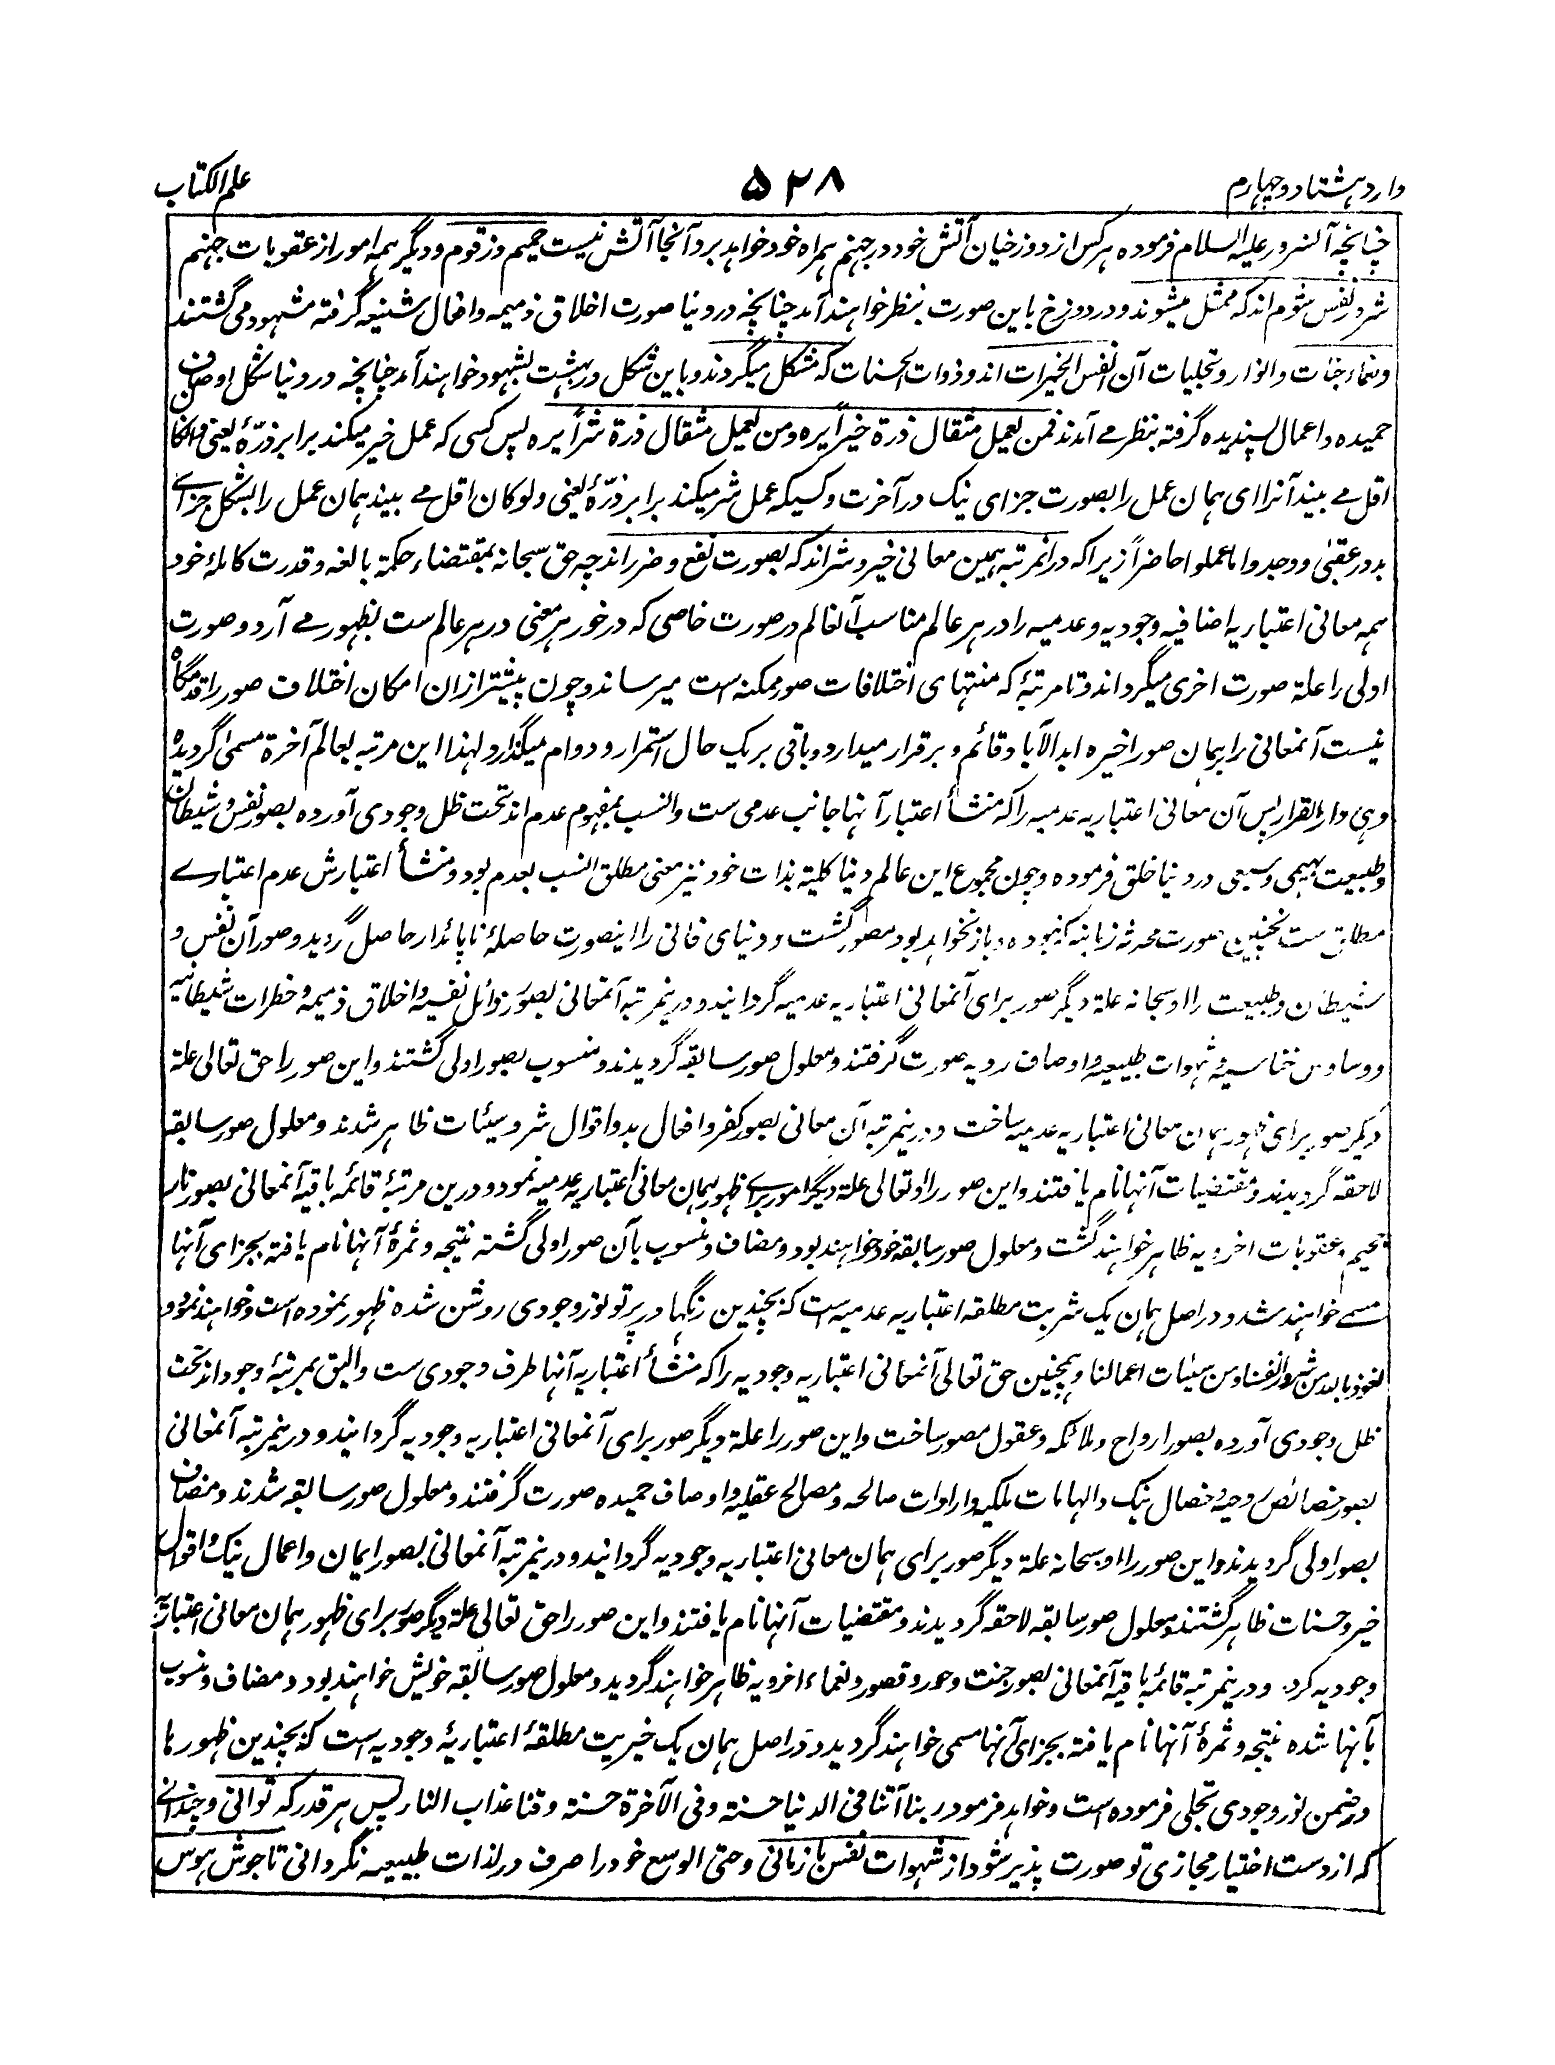 وارد هشتاد و چهارم ۵۲۸ علم الکتاب
چنانچه آنسرور علیه السلام فرموده هر کس از دوزخیان آتش خود در جهنم همراه خود خواهد برد آنجا آتش نیست حمیم و زقوم و دیگر همه امور از عقوبات جهنم
شرور نفس شوم اند که ممثل میشوند و در دوزخ باین صورت بنظر خواهند آمد چنانچه در دنیا صورت اخلاق ذمیمه و افعال شنیعه گرفته مشهود می گشتند
و نعماء جنات و انوار و تجلیات آن انفس الخیرات اند و ذوات الحسنات که متشکل میگردند و باین شکل در بهشت بشهود خواهند آمد چنانچه در دنیا شکل اوصاف
حمیده و اعمال پسندیده گرفته بنظر مے آمدند فمن یعمل مثقال ذرة خیراً یره و من یعمل مثقال ذرة شراً یره پس کسی که عمل خیر میکند برابر ذرّهٔ یعنی ولو کان
اقل مے بیند آنرا ای همان عمل را بصورت جزای نیک در آخرت و کسیکه عمل شر میکند برابر ذرّهٔ یعنی ولو کان اقل مے بیند همان عمل را بشکل جزاے
بد در عقبیٰ و وجدوا ما عملوا حاضراً زیرا که در انمرتبه همین معانی خیر و شر اند که بصورت نفع و ضرر اند چه حق سبحانه بمقتضاء حکمة بالغه و قدرت کاملهٔ خود
همه معانی اعتباریه اضافیه وجودیه و عدمیه را در هر عالم مناسب آنعالم در صورت خاصی که در خور هر معنی در هر عالم ست بظهور مے آرد و صورت
اولی را علة صورت اخری میگرداند و تا مرتبهٔ که منتهای اختلافات صور ممکنه است میرساند و چون پیشتر ازان امکان اختلاف صور را قدمگاه
نیست آنمعانی را بهمان صور اخیره ابد الآباد قائم و برقرار میدارد و باقی بریک حال استمرار و دوام میگذارد و لهذا این مرتبه بعالم آخرة مسمیٰ گردیده
و هی دار القرار پس آن معانی اعتباریه عدمیه را که منشأ اعتبار آنها جانب عدمی ست و انسب بمفهوم عدم اند تحت ظل وجودی آورده بصور نفس و شیطان
و طبیعت بهیمی و سبعی در دنیا خلق فرموده و چون مجموع این عالم دنیا کلیته بذات خود نیز معنی مطلق انسب بعدم بود و منشأ اعتبارش عدم اعتبارے
مطلق ست بهمچنین صورت محدثه زمانیه که نبوده و باز نخواهد بود مصور گشت و دنیای فانی را اینصورت حاصلهٔ ناپائدار حاصل گردید و صور آن نفس و
شیطان و طبیعت را او سبحانه علة دیگر صور برای آنمعانی اعتباریه عدمیه گردانید و درینمرتبه آنمعانی بصور رذائل نفسیه و اخلاق ذمیمه و خطرات شیطانیه
و وساوس خناسیه و شهوات طبیعیه و اوصاف ردیه صورت گرفتند و معلول صور سابقه گردیدند و منسوب بصور اولی گشتند و این صور را حق تعالی علة
دیگر صور برای ظهور همان معانی اعتباریه عدمیه ساخت و درینمرتبه آن معانی بصور کفر و افعال بد و اقوال شر و سیئات ظاهر شدند و معلول صور سابقه
لاحقه گردیدند و مقتضیات آنها نام یافتند و این صور را او تعالی علة دیگر امور براے ظهور همان معانی اعتباریه عدمیه نمود و درین مرتبهٔ قائمه باقیه آنمعانی بصور نار
جحیم و عقوبات اخرویه ظاهر خواهند گشت و معلول صور سابقه خود خواهند بود و مضاف و منسوب بآن صور اولی گشته نتیجه و ثمرهٔ آنها نام یافته بجزای آنها
مسمے خواهند شد و در اصل همان یک شریت مطلقه اعتباریه عدمیه است که بچندین رنگها در پرتو نور وجودی روشن شده ظهور نموده است و خواهند نمود و
نعوذ بالله من شرور انفسنا و من سیئات اعمالنا و همچنین حق تعالی آنمعانی اعتباریه وجودیه را که منشأ اعتباریه آنها طرف وجودی ست و الیق بمرتبهٔ وجود اند تحت
ظل وجودی آورده بصور ارواح و ملائکه و عقول مصور ساخت و این صور را علة دیگر صور برای آنمعانی اعتباریه وجودیه گردانید و درینمرتبه آنمعانی
بصور خصائص روحیه و خصال نیک و الهامات ملکیه و ارادات صالحه و مصالح عقلیه و اوصاف حمیده صورت گرفتند و معلول صور سابقه شدند و مضاف
بصور اولی گردیدند و این صور را او سبحانه علة دیگر صور برای همان معانی اعتباریه وجودیه گردانید و درینمرتبه آنمعانی بصور ایمان و اعمال نیک و اقوال
خیر و حسنات ظاهر گشتند و معلول صور سابقه لاحقه گردیدند و مقتضیات آنها نام یافتند و این صور را حق تعالی علة دیگر صور برای ظهور همان معانی اعتباریه
وجودیه کرد و درینمرتبه قائمهٔ باقیه آنمعانی بصور جنت و حور و قصور و نعماء اخرویه ظاهر خواهند گردید و معلول صور سابقه خویش خواهند بود و مضاف و منسوب
بآنها شده نتیجه و ثمرهٔ آنها نام یافته بجزای آنها مسمی خواهند گردید و در اصل همان یک خیریت مطلقهٔ اعتباریهٔ وجودیه است که بچندین ظهورها
در ضمن نور وجودی تجلی فرموده است و خواهد فرمود ربنا آتنا فی الدنیا حسنة و فی الآخرة حسنة و قنا عذاب النار پس هر قدر که توانی و چندانے
که از دست اختیار مجازی تو صورت پذیر شود از شهوات نفس بازمانی و حتی الوسع خود را صرف در لذات طبیعیه نگردانی تا جوش هوس